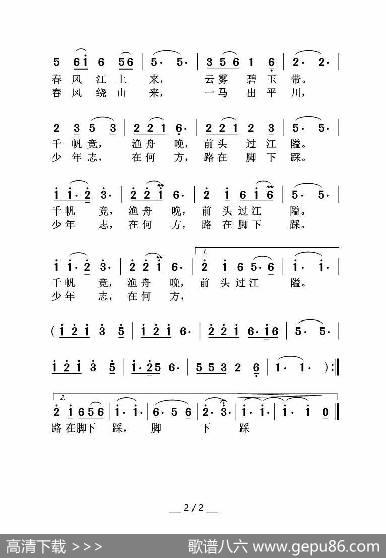 5 6i 6 56 | 5· 5· | 356 1 6 | 2· 2· |
春风江上 来， 云雾 碧玉 带。
春风绕山 来， 一马 出平 川，
2 3 5 3 | 2 2 1 6· | 2 2 1 2 3 | 5· 5· |
千帆 竞， 渔舟 晚， 前头 过江 隘。
少年 志， 在何 方， 路在 脚下 踩。
i i· 2 3· | 2 2 i 6· | 2 i 6 i 6 | 5· 5· |
千帆 竞， 渔舟 晚， 前头 过江 隘。
少年 志， 在何 方， 路在 脚下 踩。
1.
i i· 2 3· | 2 2 i 6· | 2 i 6 5· 6 | i· i· |
千帆 竞， 渔舟 晚， 前头 过江 隘。
少年 志， 在何 方，
( i 2 i 3 5 | i 2 i 6· | 2 2 i 2 6· i 6 | 5· 5· |
i 2 i 3 5 | i· 2 5 6· | 5 5 3 2 6 | i· i· ) :||
2.
2 i 6 5 6 | i· i· | 6· 5 6 | 2· 3· | i· i· | i· i 0 ||
路在脚下 踩， 脚 下 踩
2 / 2
高清下载 >>>
歌谱八六 www.gepu86.com